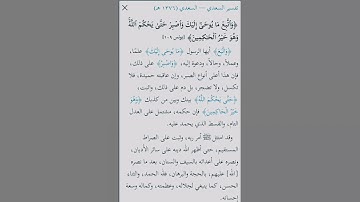 تفسير السعدي — السعدي (١٣٧٦ هـ)
﴿وَٱتَّبِعۡ مَا يُوحَىٰٓ إِلَيۡكَ وَٱصۡبِرۡ حَتَّىٰ يَحۡكُمَ ٱللَّهُۚ
وَهُوَ خَيۡرُ ٱلۡحَٰكِمِينَ﴾ [يونس ١٠٩]
﴿وَاتَّبِعْ﴾ أيها الرسول ﴿مَا يُوحَى إِلَيْكَ﴾ علمًا،
وعملًا، وحالًا، ودعوة إليه، ﴿وَاصْبِرْ﴾ على ذلك،
فإن هذا أعلى أنواع الصبر، وإن عاقبته حميدة، فلا
تكسل، ولا تضجر، بل دم على ذلك، واثبت،
﴿حَتَّى يَحْكُمَ اللَّهُ﴾ بينك وبين من كذبك ﴿وَهُوَ
خَيْرُ الْحَاكِمِينَ﴾ فإن حكمه، مشتمل على العدل
التام، والقسط الذي يحمد عليه.
وقد امتثل ﷺ أمر ربه، وثبت على الصراط
المستقيم، حتى أظهر الله دينه على سائر الأديان،
ونصره على أعدائه بالسيف والسنان، بعد ما نصره
[الله] عليهم، بالحجة والبرهان، فلله الحمد، والثناء
الحسن، كما ينبغي لجلاله، وعظمته، وكماله وسعة
إحسانه.